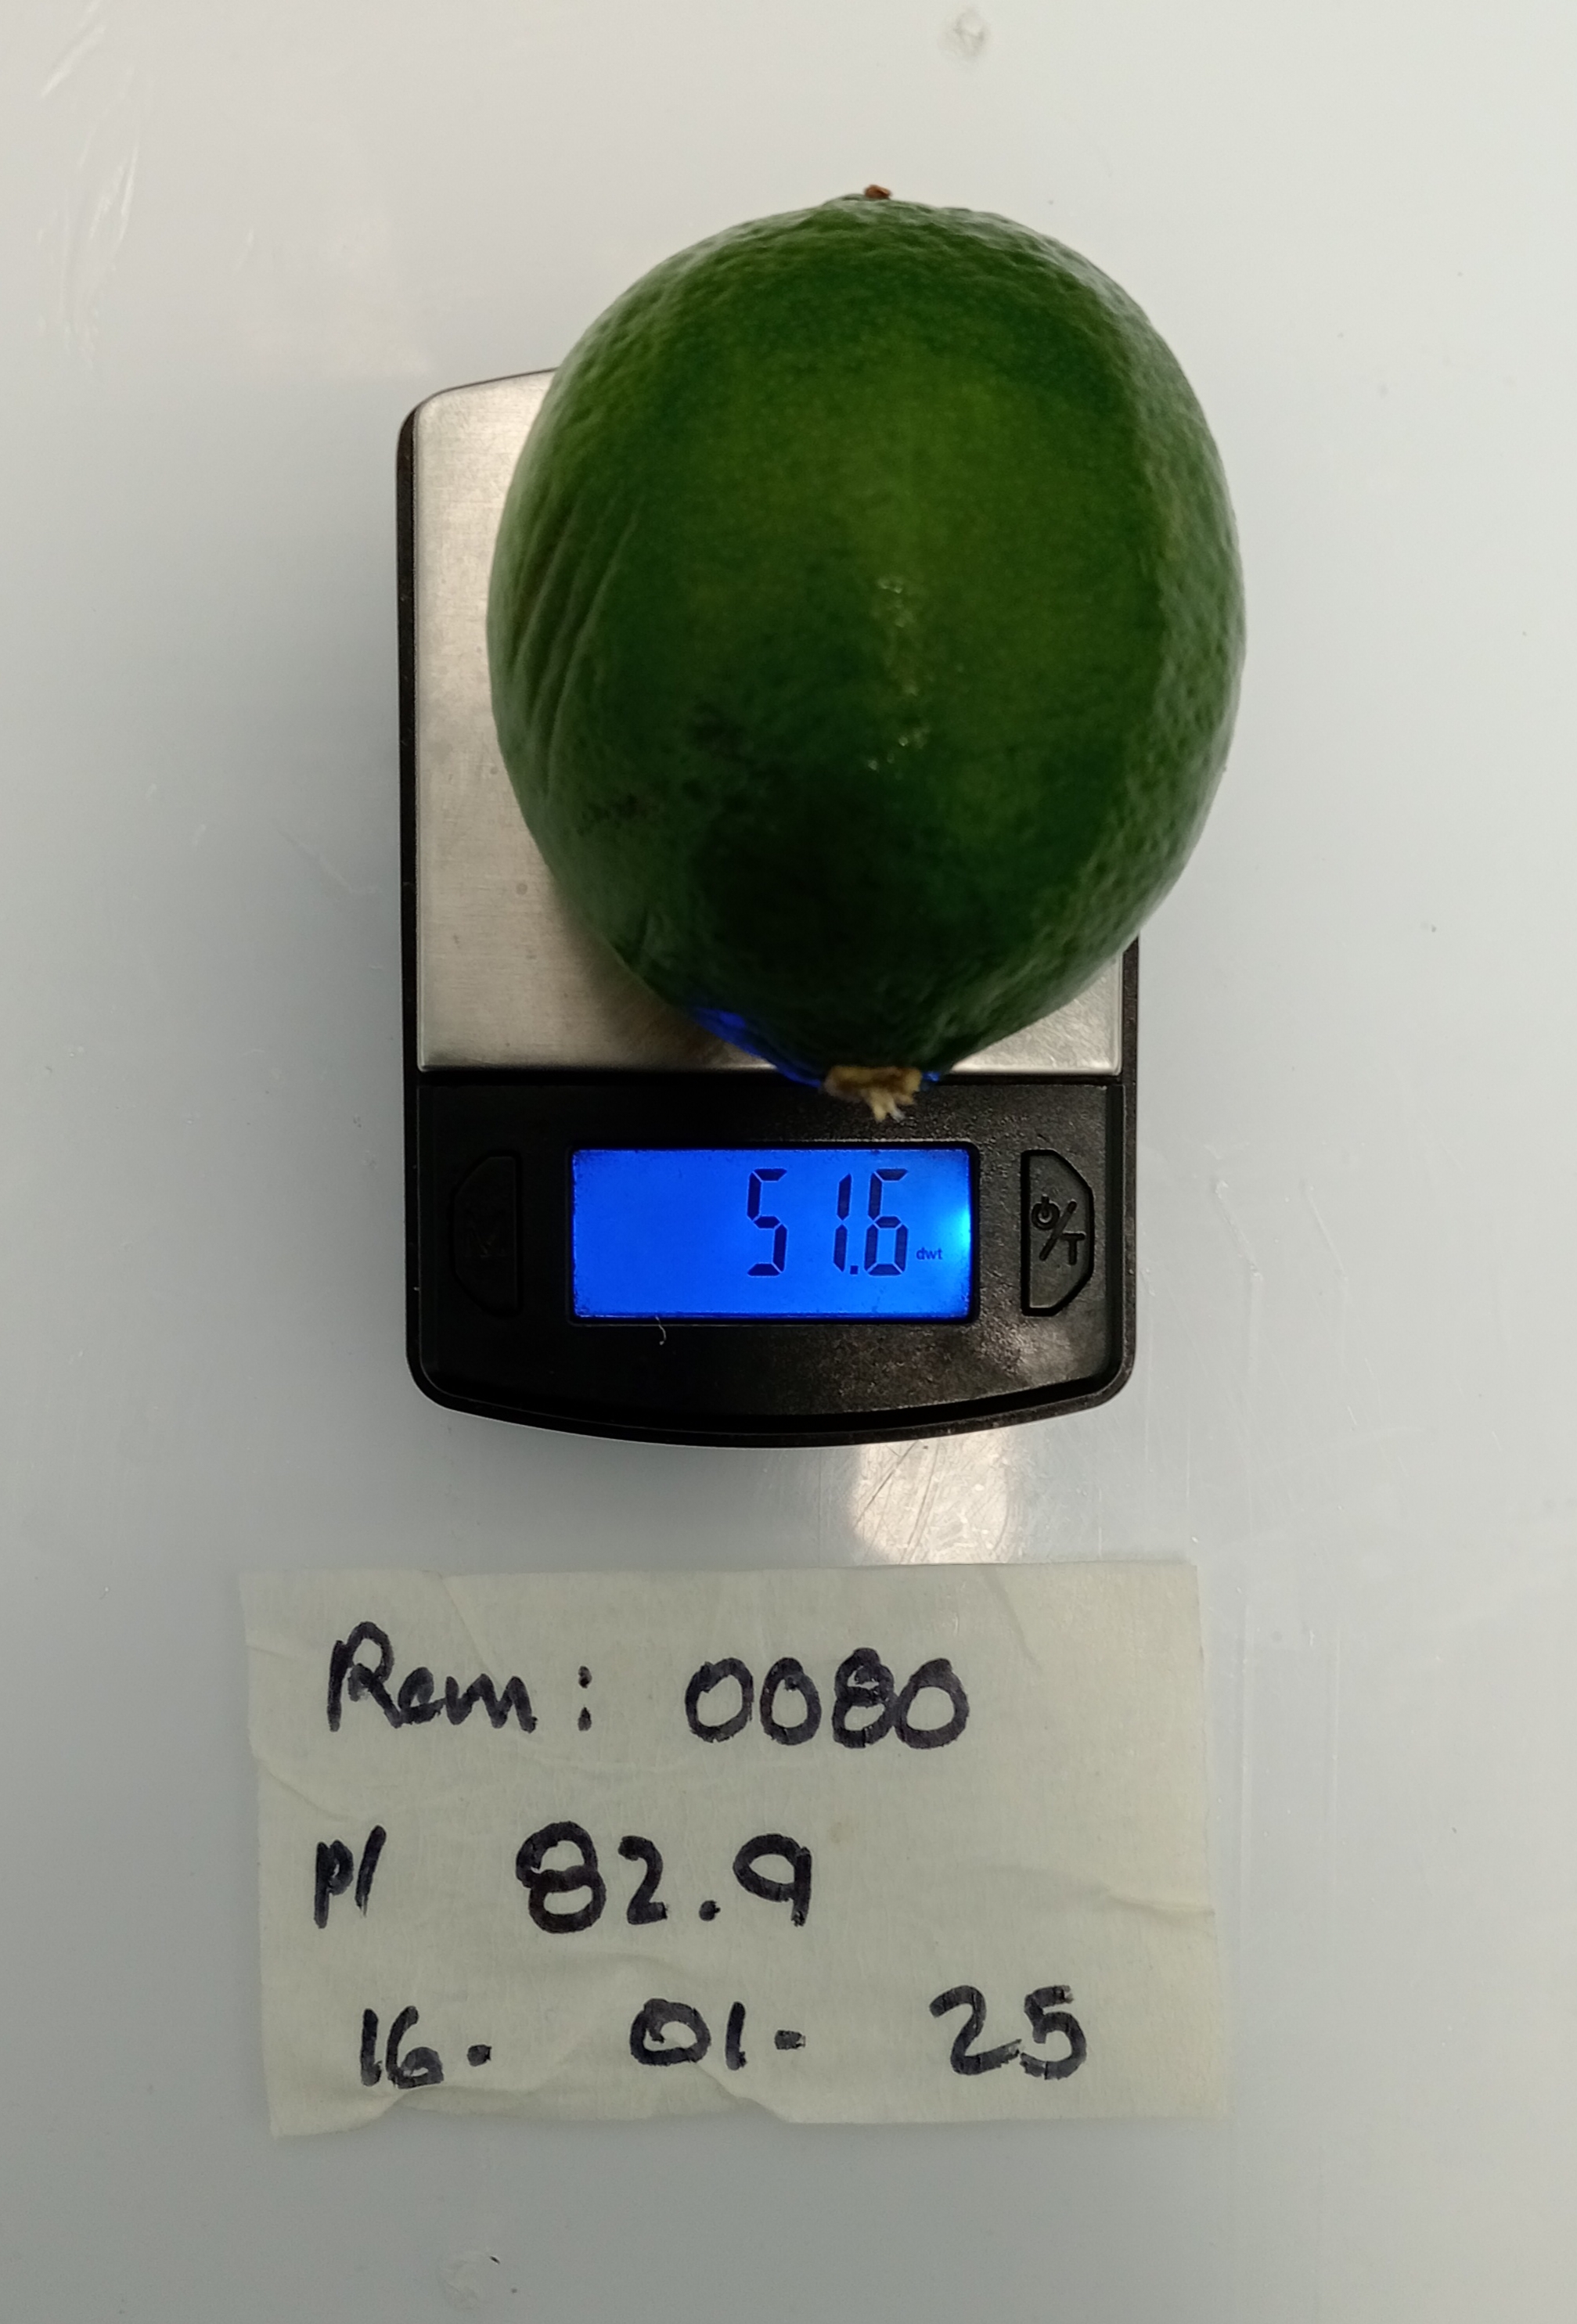 51.6 dwt
⏻/T
Rem: 0080
p/ 82.9
16. 01. 25